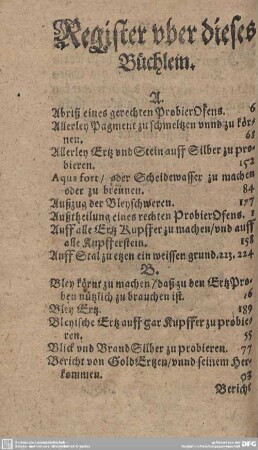 Register vber dieses
Büchlein.
A.
Abriß eines gerechten ProbierOfens. 6
Allerley Pagment zu schmeltzen vnnd zu kör-
nen. 68
Allerley Ertz vnd Stein auff Silber zu pro-
bieren. 152
Aqua fort / oder Scheidewasser zu machen
oder zu brennen. 84
Außzug der Bleyschweren. 177
Außtheilung eines rechten ProbierOfens. 1
Auff alle Ertz Kupffer zu machen/vnd auff
alle Kupfferstein. 158
Auff Stal zu etzen ein weissen grund. 223. 224
B.
Bley körnt zu machen / daß zu den ErtzPro-
ben nützlich zu brauchen ist. 16
Bley Ertz. 189
Bleyische Ertz auff gar Kupffer zu probie-
ren. 55
Blick vnd Brand Silber zu probieren. 77
Bericht von Gold Ertzen/vnnd seinem Her-
kommen. 93
Bericht